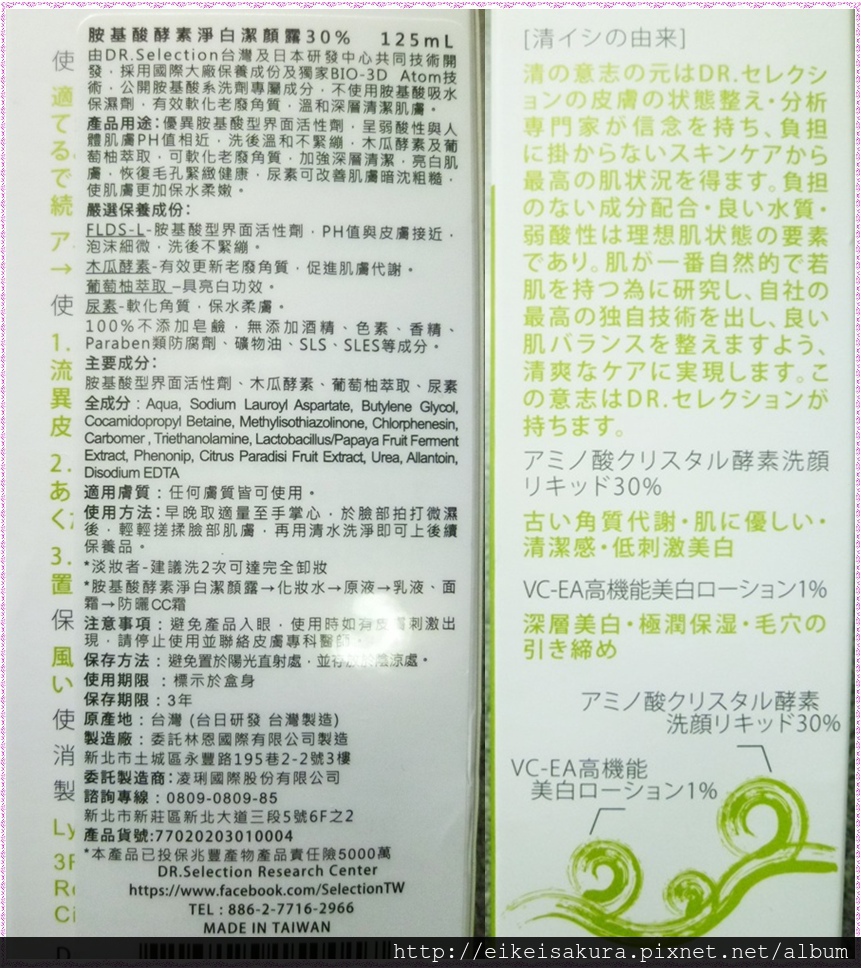 胺基酸酵素淨白潔顏露30% 125mL
由DR.Selection台灣及日本研發中心共同技術開
發，採用國際大廠保養成份及獨家BIO-3D Atom技
術，公開胺基酸系洗劑專屬成分，不使用胺基酸吸水
保濕劑，有效軟化老廢角質，溫和深層清潔肌膚。
產品用途：優異胺基酸型界面活性劑，呈弱酸性與人
體肌膚PH值相近，洗後溫和不緊繃，木瓜酵素及葡
萄柚萃取，可軟化老廢角質，加強深層清潔，亮白肌
膚，恢復毛孔緊緻健康，尿素可改善肌膚暗沈粗糙，
使肌膚更加保水柔嫩。
嚴選保養成份：
FLDS-L-胺基酸型界面活性劑，PH值與皮膚接近，
泡沫細微，洗後不緊繃。
木瓜酵素-有效更新老廢角質，促進肌膚代謝。
葡萄柚萃取–具亮白功效。
尿素-軟化角質，保水柔膚。
100%不添加皂鹼，無添加酒精、色素、香精、
Paraben類防腐劑、礦物油、SLS、SLES等成分。
主要成分：
胺基酸型界面活性劑、木瓜酵素、葡萄柚萃取、尿素
全成分：Aqua, Sodium Lauroyl Aspartate, Butylene Glycol,
Cocamidopropyl Betaine, Methylisothiazolinone, Chlorphenesin,
Carbomer, Triethanolamine, Lactobacillus/Papaya Fruit Ferment
Extract, Phenonip, Citrus Paradisi Fruit Extract, Urea, Allantoin,
Disodium EDTA
適用膚質：任何膚質皆可使用。
使用方法：早晚取適量至手掌心，於臉部拍打微濕
後，輕輕搓揉臉部肌膚，再用清水洗淨即可上後續
保養品。
*淡妝者-建議洗2次可達完全卸妝
*胺基酸酵素淨白潔顏露→化妝水→原液→乳液、面
霜→防曬CC霜
注意事項：避免產品入眼，使用時如有皮膚刺激出
現，請停止使用並聯絡皮膚專科醫師。
保存方法：避免置於陽光直射處，並存放於陰涼處。
使用期限：標示於盒身
保存期限：3年
原產地：台灣 (台日研發 台灣製造)
製造廠：委託林恩國際有限公司製造
新北市土城區永豐路195巷2-2號3樓
委託製造商：凌琍國際股份有限公司
諮詢專線：0809-0809-85
新北市新莊區新北大道三段5號6F之2
產品貨號:77020203010004
*本產品已投保兆豐產物產品責任險5000萬
DR.Selection Research Center
https://www.facebook.com/SelectionTW
TEL : 886-2-7716-2966
MADE IN TAIWAN
使
適
てる
で
続
ア
→
使
1.
流
異
皮
2.
あ
く
3.
置
保
風
い
使
消
製
Ly
3F
Ci
[清イシの由来]
清の意志の元はDR.セレクシ
ョンの皮膚の状態整え・分析
専門家が信念を持ち、負担
に掛からないスキンケアから
最高の肌状況を得ます。負担
のない成分配合・良い水質・
弱酸性は理想肌状態の要素
であり。肌が一番自然的で若
肌を持つ為に研究し、自社の
最高の独自技術を出し、良い
肌バランスを整えますよう、
清爽なケアに実現します。こ
の意志はDR.セレクションが
持ちます。
アミノ酸クリスタル酵素洗顔
リキッド30%
古い角質代謝・肌に優しい・
清潔感・低刺激美白
VC-EA高機能美白ローション1%
深層美白・極潤保湿・毛穴の
引き締め
アミノ酸クリスタル酵素
洗顔リキッド30%
VC-EA高機能
美白ローション1%
http://eikeisakura.pixnet.net/album